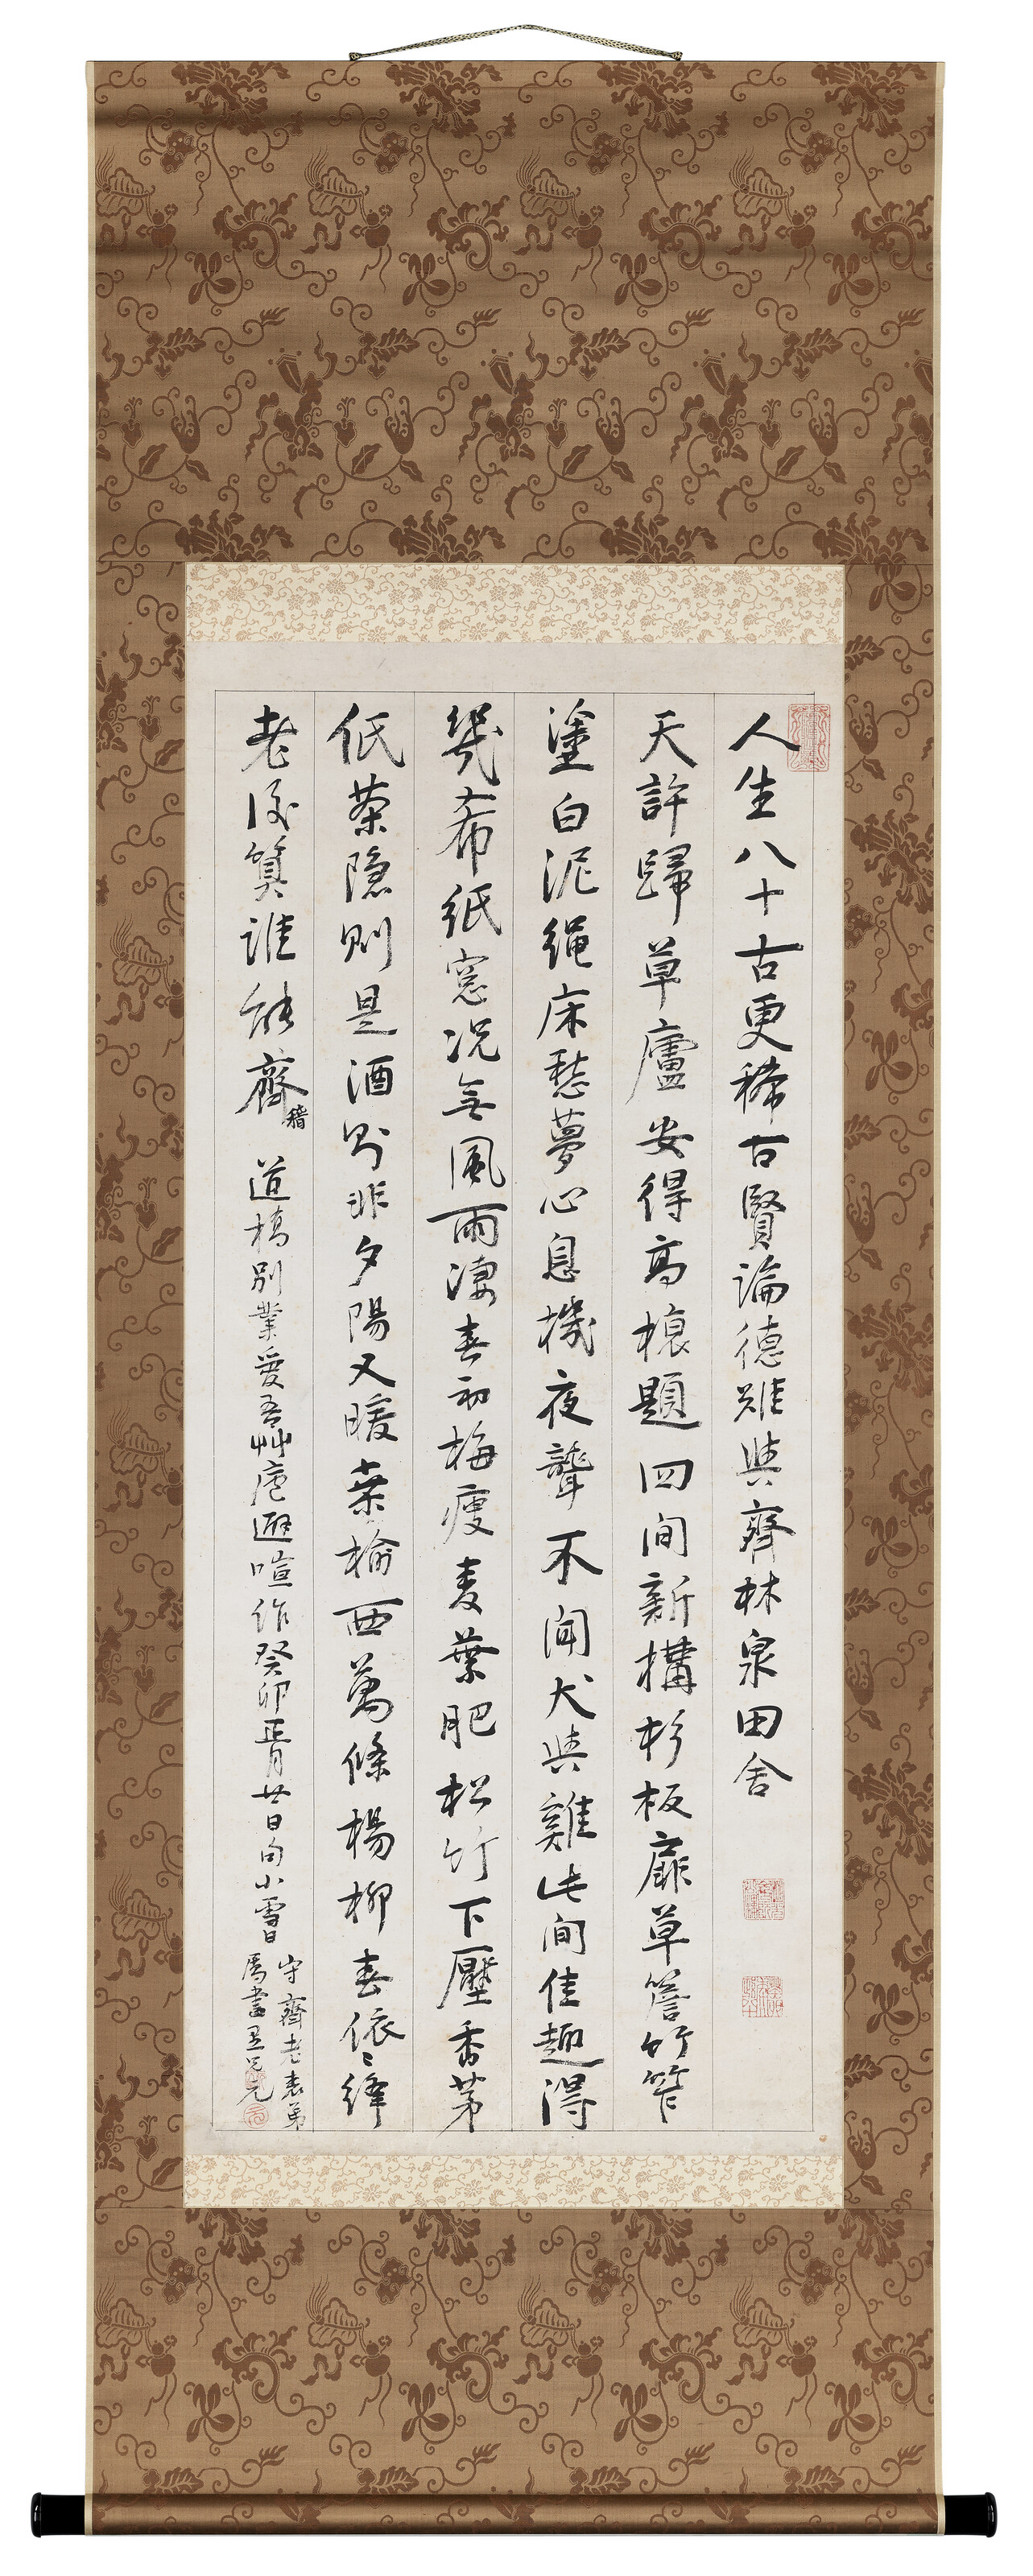 人生八十古更稀古賢論德難與齊林泉田舍
天許歸草廬安得高榱題四間新構杉板扉草簷竹笮
塗白泥繩床愁夢心息機夜聾不聞犬與雞此間佳趣得
幾希紙窓況無風雨淒春初梅瘦麦葉肥松竹下壓香茅
低茶隱則是酒則非夕陽又暖桑榆西萬條楊柳春依〻絳
老後算誰能齊
道橋別業愛吾艸廬避喧作癸卯正月廿日向小雪日
守齋老表弟
屬書